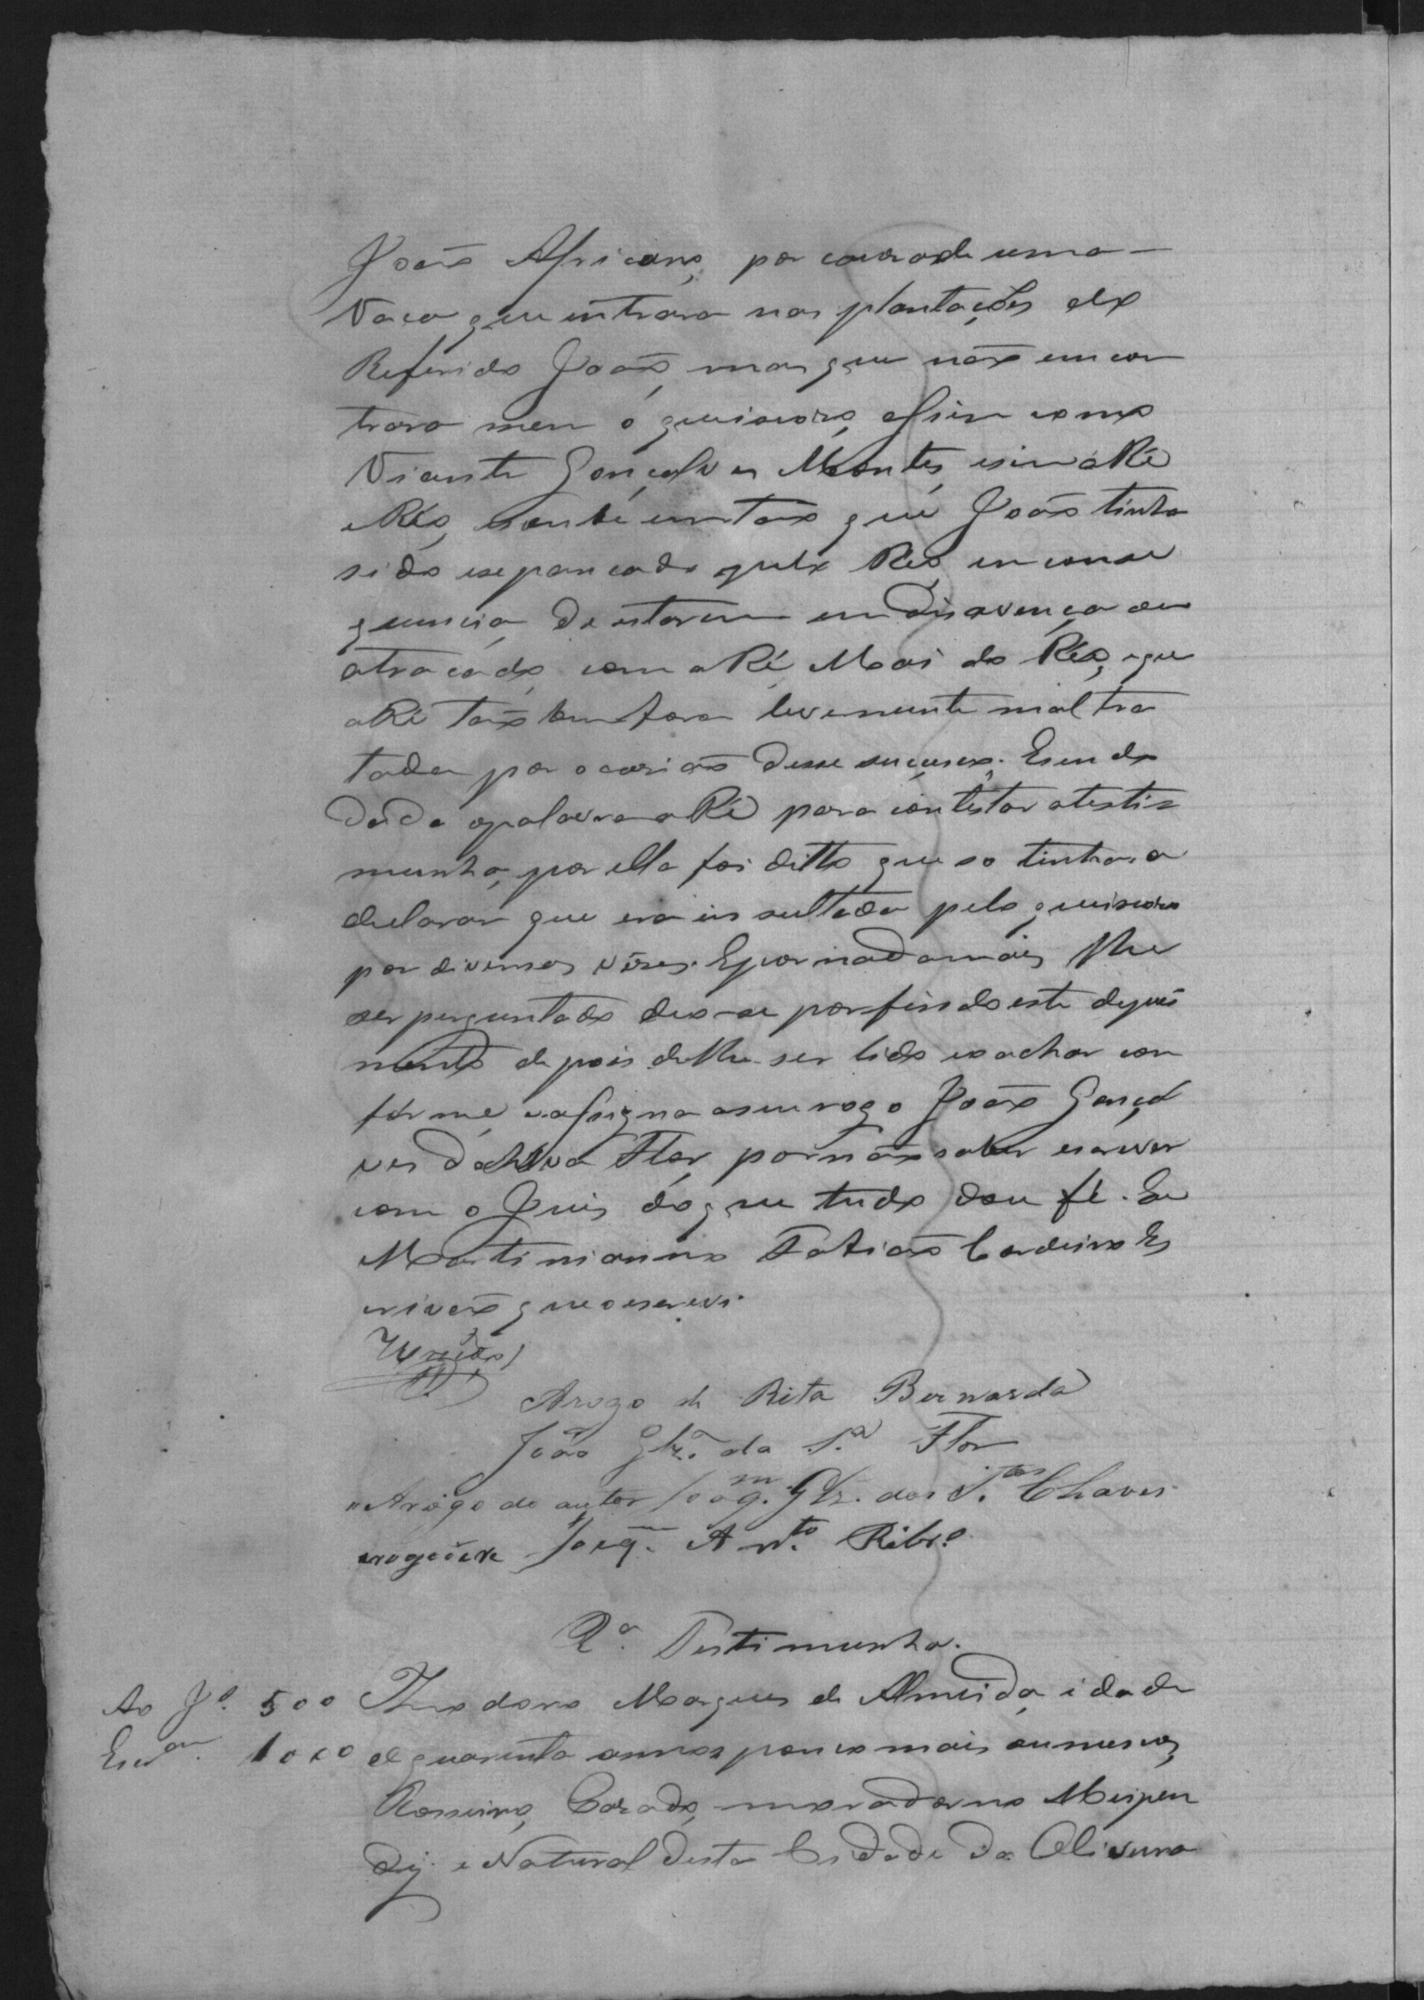 João Africano, por causa de uma
Vaca, que entrara nas plantações do
Referido João, mas que não encon
trara nem o queixoso, assim como
Vicente Gonçalves Montes, e sim a Ré
e Réo, soube então que João tinha
sido espancado pelo Réo, em conse
quencia de estarem em disavença ou
atracado com a Ré Mai do Réo, e que
a Ré tão bem fora levemente maltra
tada por ocasião desse sucesso. E sendo
dada a palavra a Ré para contestar a testi
munha, por ella foi ditto que so tinha a
declarar que era insultada pelo queixoso
por diversas vêses. E por nada mais lhe
ser perguntado deo-se por findo este depoi
mento depois de lhe ser lido e o achar con
forme, e assigna a seu rogo João Gonçal
ves da Silva Flor, por não saber escrever
com o Juis do que tudo dou fé. Eu
Martinianno Fabião Cordeiro Es
crivão que o escrevi.
Arogo de Rita Bernarda
João Glz. da S.ª Flor
Arôgo do autor Joaq.m Glz. dos S.tos Chaves
Joaq.m Ant.to Ribr.o
2ª. Testimunha.
Ao J.o 500 Theodoro Marques de Almeida, idade
Escam. 1000 de quarenta annos pouco mais ou menos,
Rosseiro, Cazado, morador no
e Natural desta Cidade da Oliveira